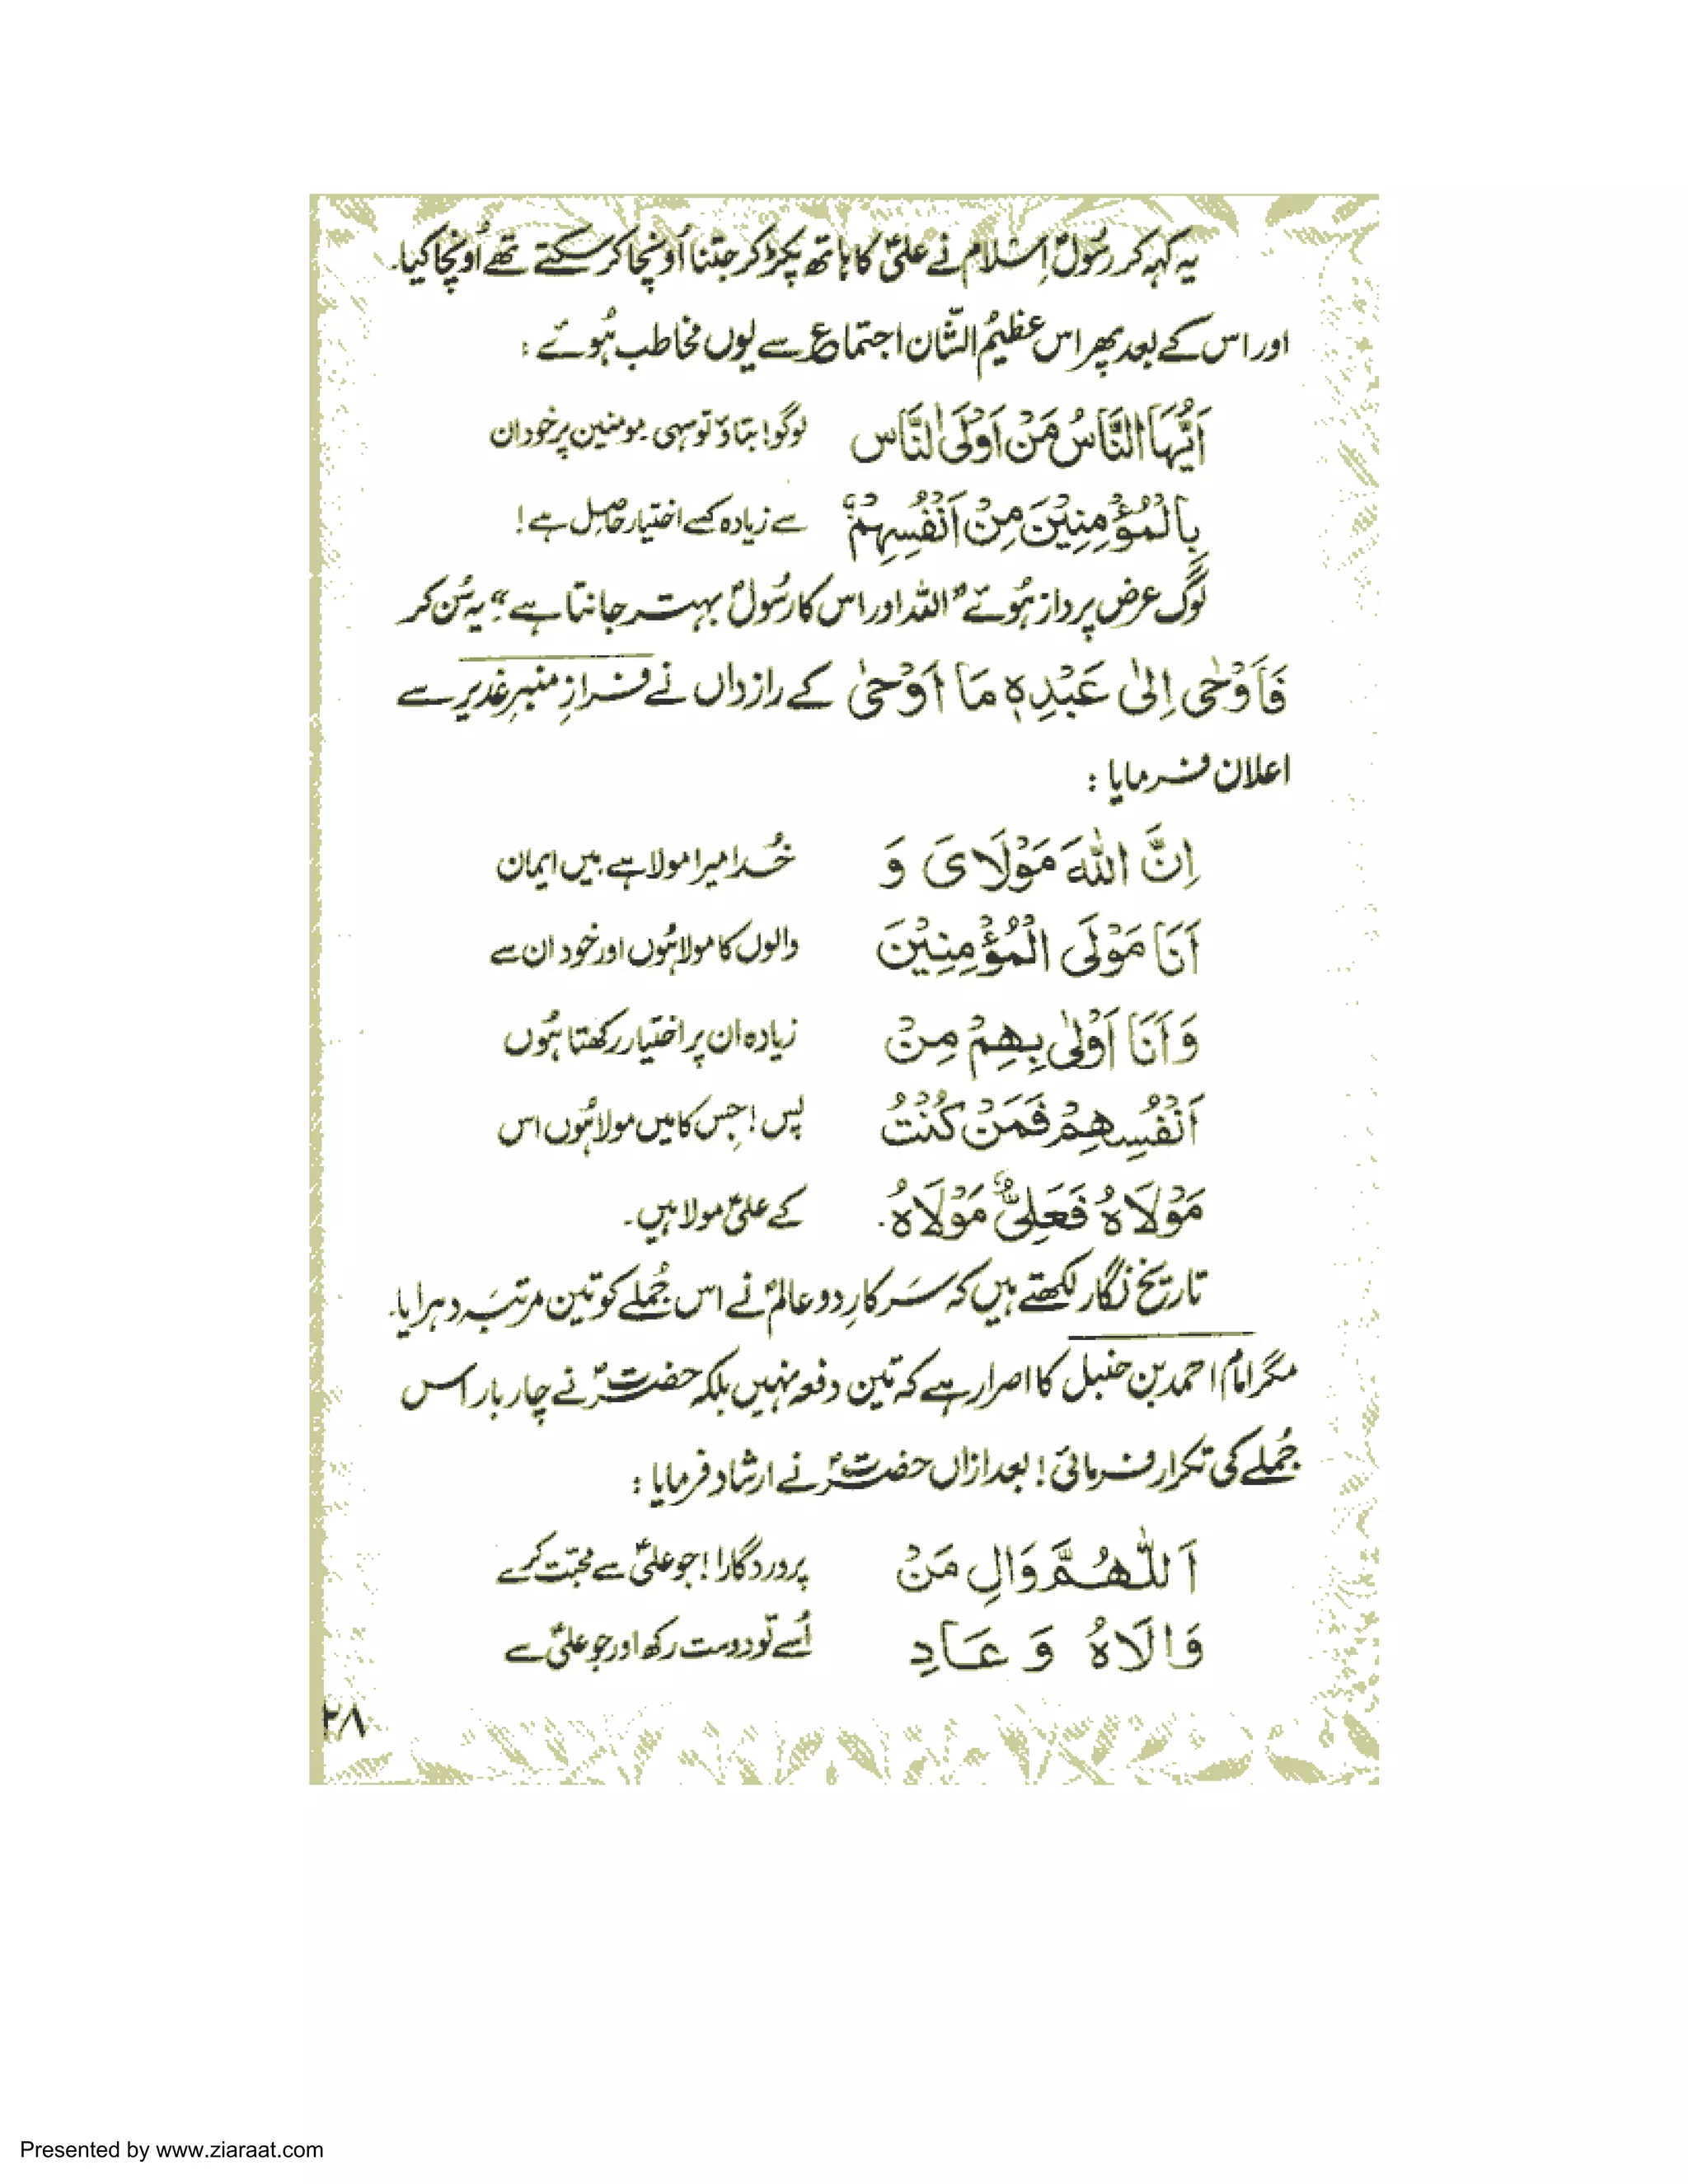 یہ کہہ کر رسُولِؐ اِسلام نے علیؑ کا ہاتھ پکڑ کر جتنا اُونچا کر سکتے تھے اُونچا کیا۔
اور اس کے بعد پھر اس عظیمُ الشّان اجتماع سے یوں مخاطب ہُوئے :
اَیُّھَا النَّاسُ مَنْ اَوْلَی النَّاس لوگو! بتاؤ تو سہی۔ مومنین پر خود ان
بِالْمُؤْمِنِیْنَ مِنْ اَنْفُسِہِمْ؟ سے زیادہ کسے اختیار حاصِل ہے!
لوگ عرض پرداز ہُوئے "اللہ اور اس کا رسُولؐ بہتر جانتا ہے" یہ سُن کر
فَاَوْحٰی اِلیٰ عَبْدِہٖ مَا اَوْحیٰ کے رازداں نے فرازِ منبرِ غدیر سے
اعلان فرمایا :
اِنَّ اللّٰہَ مَوْلَایَ وَ خُدا میرا مولا ہے۔ میں ایمان
اَنَا مَوْلَی الْمُؤْمِنِیْنَ والوں کا مولا ہُوں اور خود ان سے
وَاَنَا اَوْلیٰ بِھِمْ مِنْ زیادہ ان پر اختیار رکھتا ہُوں
اَنْفُسِھِمْ فَمَنْ کُنْتُ پس! جِس کا میں مولا ہُوں اس
مَوْلَاہُ فَعَلِیٌّ مَوْلَاہُ۔ کے علیؑ مولا ہیں۔
تاریخ نگار لکھتے ہیں کہ سَرکارِ دو عالمؐ نے اس جُملے کو تین مرتبہ دہرایا۔
مگر امام احمد بن حنبل کا اصرار ہے کہ تین دفعہ نہیں بلکہ حضرتؐ نے چار بار اس
جُملے کی تکرار فرمائی! بعد ازاں حضرتؐ نے ارشاد فرمایا :
اَللّٰھُمَّ وَالِ مَنْ پروردگارا! جو علیؑ سے محبّت کرے
وَالَاہُ وَ عَادِ اُسے تُو دوست رکھ اور جو علیؑ سے
۲۸
Presented by www.ziaraat.com